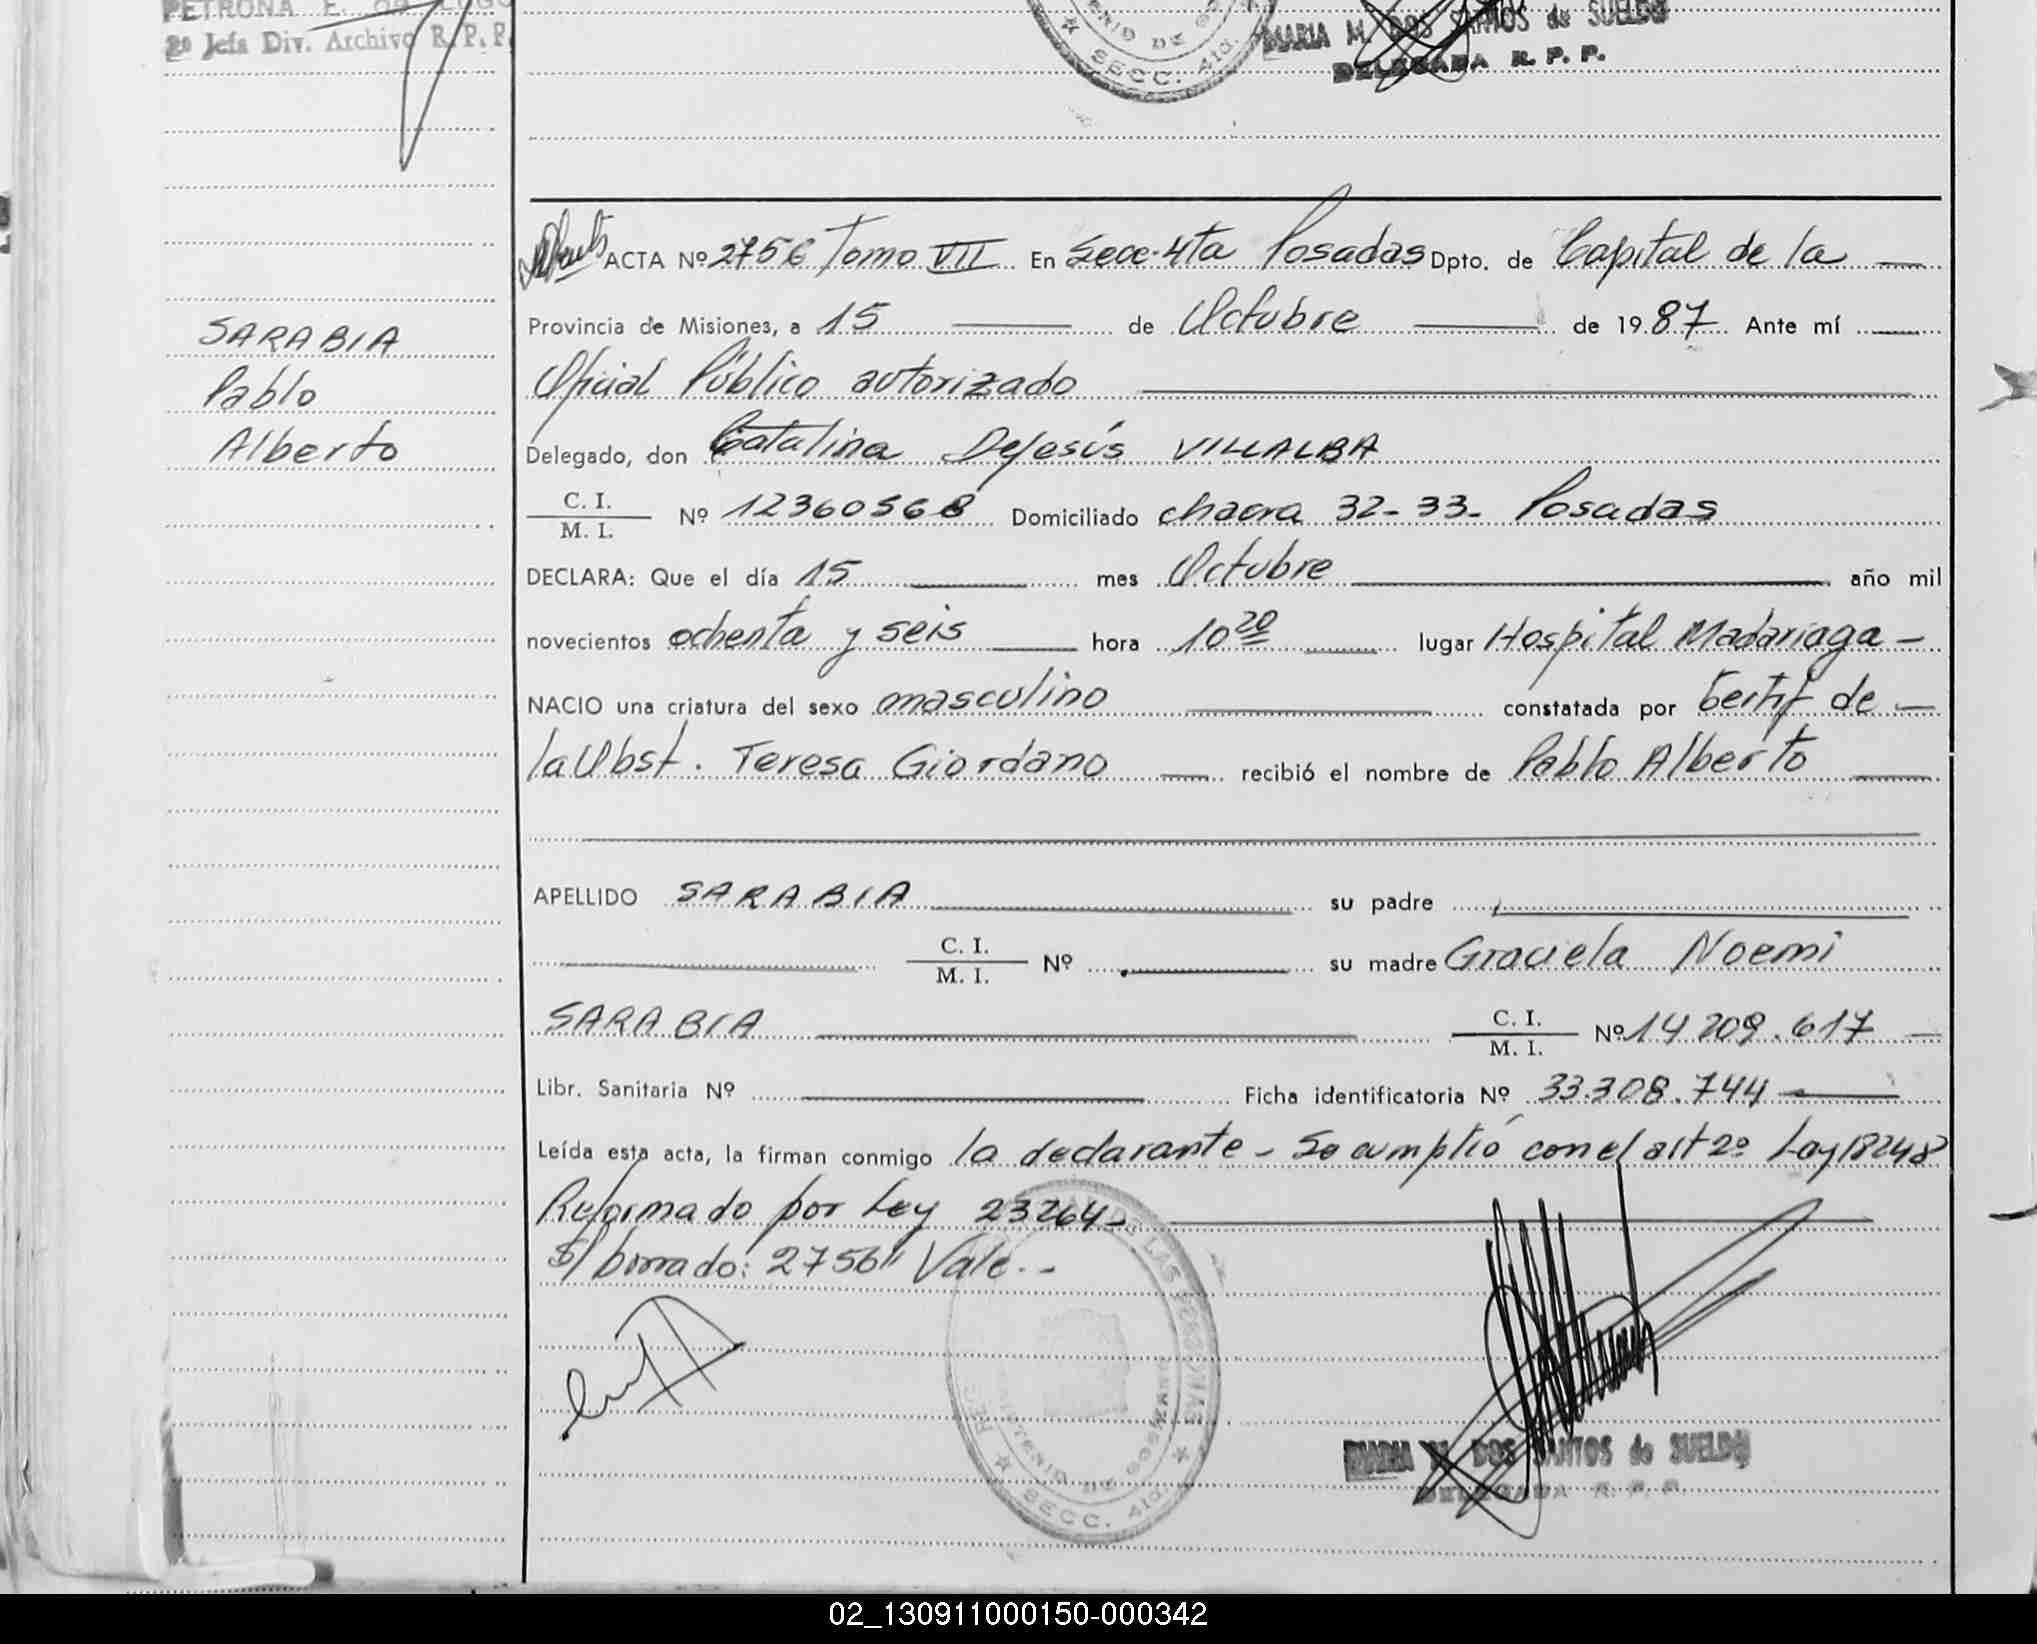 PETRONA E. de LUGO
2º Jefa Div. Archivo R. P. P.
MARIA M. DOS SANTOS de SUELDO
DELEGADA R. P. P.
SECC. 4ta.
ACTA Nº 2756 Tomo VII En Secc. 4ta Posadas Dpto. de Capital de la
Provincia de Misiones, a 15 de Octubre de 1987 Ante mí
Oficial Público autorizado
Delegado, don Catalina DeJesús VILLALBA
C. I.
M. I. Nº 12360568 Domiciliado chacra 32-33- Posadas
DECLARA: Que el día 15 mes Octubre año mil
novecientos ochenta y seis hora 10 20 lugar Hospital Madariaga -
NACIO una criatura del sexo masculino constatada por Certif de
la Obst. Teresa Giordano recibió el nombre de Pablo Alberto
APELLIDO SARABIA su padre
C. I.
M. I. Nº su madre Graciela Noemi
SARABIA C. I.
M. I. Nº 14 209.617
Libr. Sanitaria Nº Ficha identificatoria Nº 33.308.744
Leída esta acta, la firman conmigo la declarante - Se cumplió con el art 2º Ley 18248
Reformado por Ley 23264-
S/borrado: 2756" Vale.-
SARABIA
Pablo
Alberto
DE LAS PERSONAS
MINISTERIO DE GOBIERNO
SECC. 4ta.
MARIA M. DOS SANTOS de SUELDO
DELEGADA R. P. P.
02_130911000150-000342